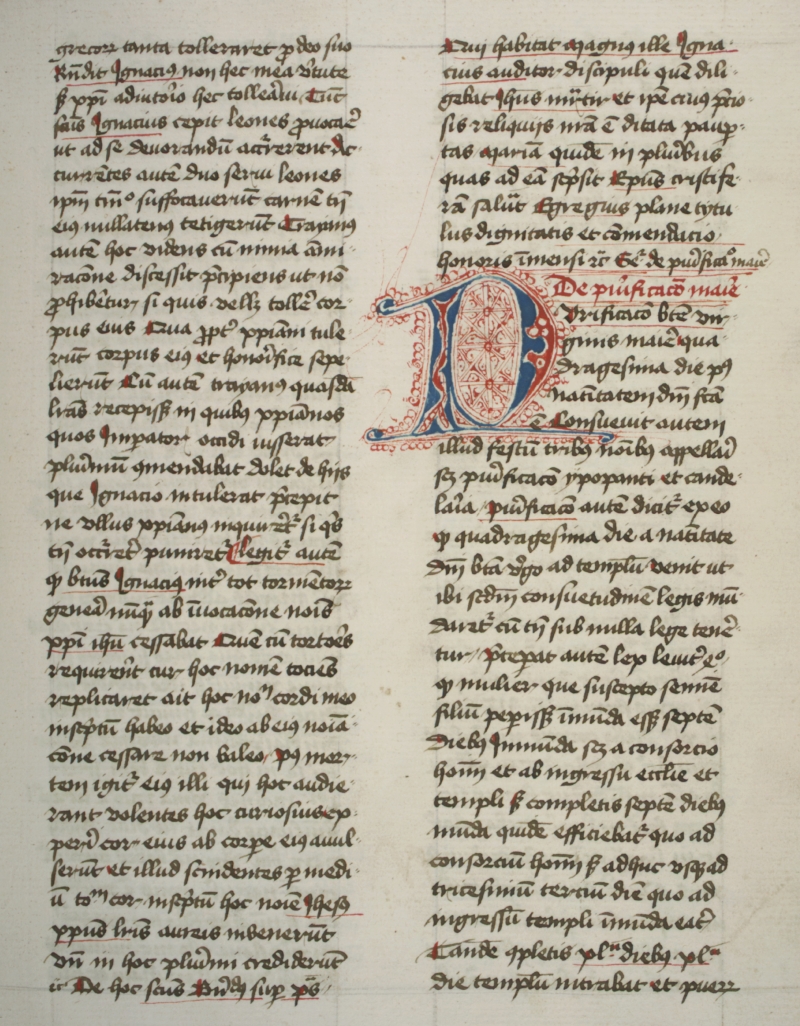 grecorr tanta tolleraret p deo suo
Rndit Ignacius non hec mea vtute
s xpi adiutorio hec tolleraui Tuc
scus Ignacius cepit leones puocare
ut ad se deuorandu accrerent Ac
currentes autem duo seui leones
ipm tm suffocauerut carnem tn
eius nullatenus tetigerut Traianus
autem hoc videns cu nimia ami
racone discessit pcipiens ut no
phibetur si quis vellz tolle cor
pus eius Qua ppt xpiani tule
rut corpus eius et honorifice sepe
lierut Cu aute trayanus quasda
lras recepiss in quibus xpianos
quos Imperator occidi iusserat
plurimu comendabat dolet de hijs
que Ignacio intulerat pcepit
ne vllus xpianus inquireret si qs
tn occurret puniret legit aute
q btus Ignacius int tot tormentorr
genera nuq ab inuocacone nois
xpi ihu cessabat Que cu tortores
requirent cur hoc nomen tocies
replicaret ait hoc no cordi meo
inscptu habeo et ideo ab eius noia
cone cessare non valeo pus mor
tem igit eius illi qui hoc audie
rant volentes hoc curiosius exp
periri cor eius ab corpe eius auul
serut et illud scindentes p medi
u totm cor inscptu hoc noie Jhesus
xpus lris aureis inuenerut
vn in hoc plurimi crediderut
ic De hoc scus Bndus sup ps
Qui habitat Magnus ille Igna
cius auditor discipuli que dili
gebat Jhus mr tir et ipe cuius pcio
sis reliquijs nra e ditata paup
tas Mariam quide in pluribus
quas ad ea scpsit Epus cristife
ra salut Egregius plane tytu
lus dignitatis et comendacio
honoris imensi rc Sc de purificaco marie
De purificaco marie
Purificaco bte vir
ginis marie qua
dragesima die pus
natitatem dni fta
e Consueuit autem
illud festu tribus noibus appellari
scz purificaco ypopanti et cande
laria purificaco aute dicit ex eo
q quadragesima die a natitate
Dni bta vgo ad templu venit ut
ibi scdm consuetudine legis mu
daret cu tn sub nulla lege tene
tur pceperat autem lex leuit
q mulier que suscepto semine
filiu pepiss inmuda ess septe
Diebus Inmuda scz a consorcio
homi et ab ingressu ecclie et
templi s completis septe diebus
muda quide efficiebat quo ad
consorciu homi s adhuc vsq ad
tricesimu terciu die quo ad
ingressu templi inmuda erat
Tande cpletis xl diebus xl
die templu intrabat et puerr